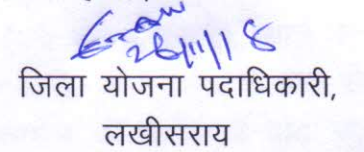 26/11/18
जिला योजना पदाधिकारी,
लखीसराय